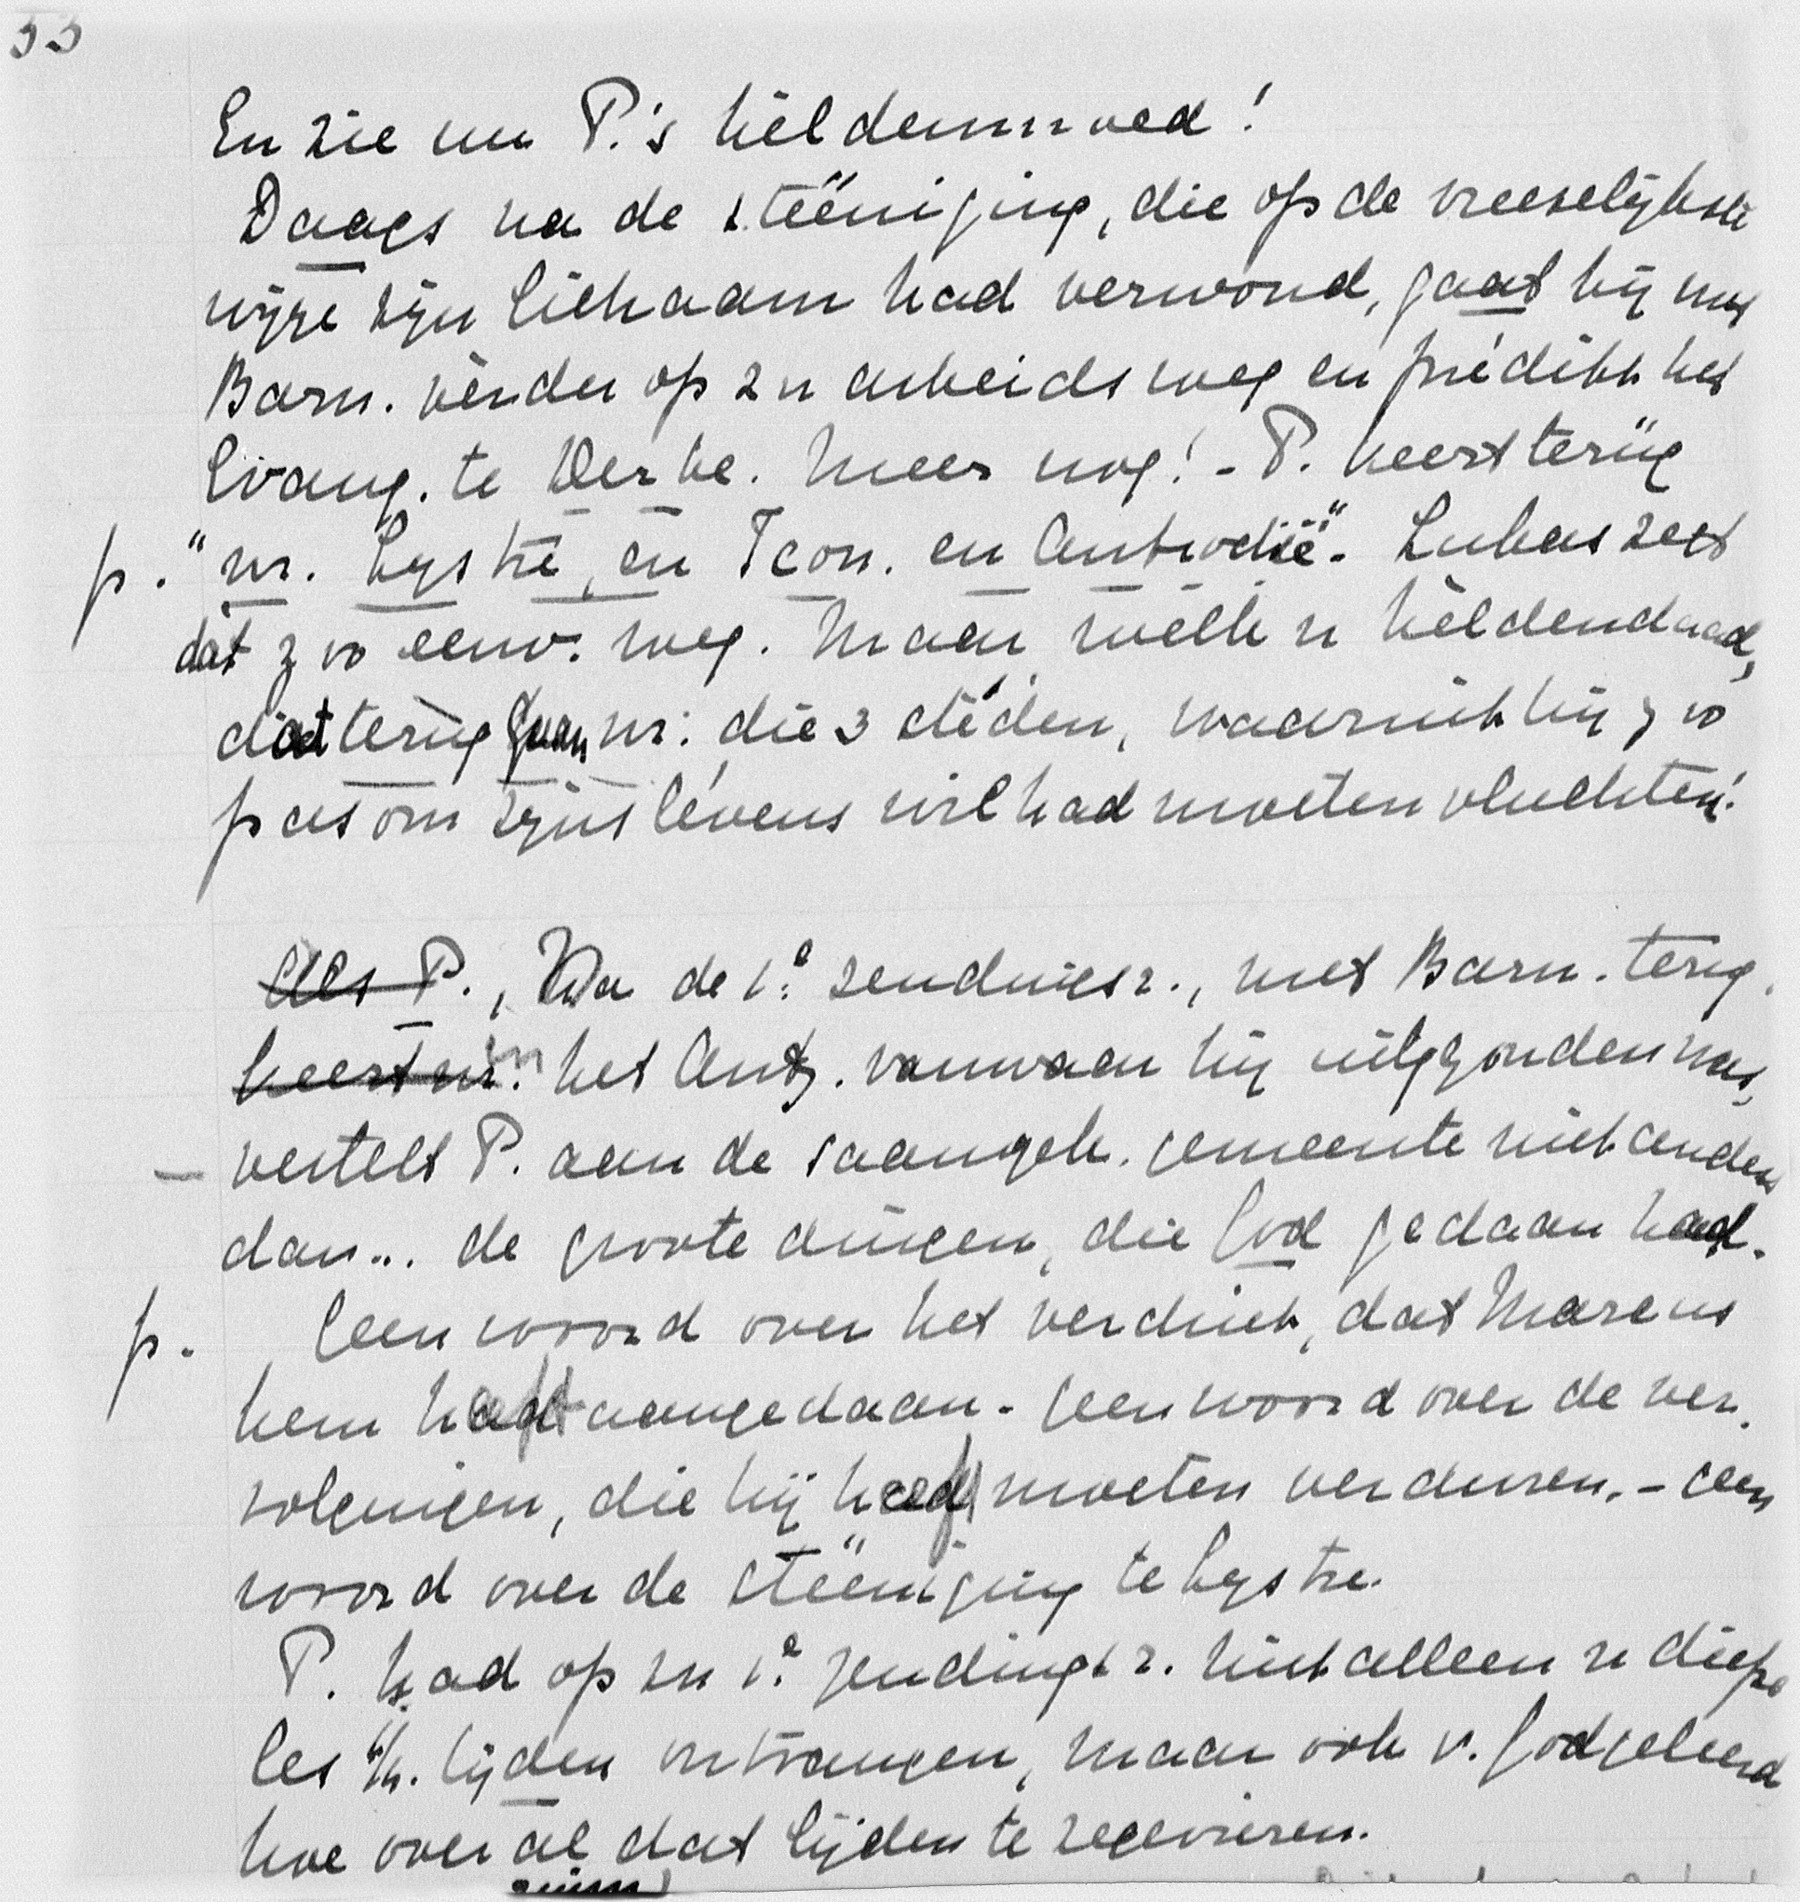 33
En zie nu P.'s hèldenmoed!
Daags na de steëniging, die op de vreeselijkste
wijze zijn lichaam had verwond, gaat hij met
Barn. vèrder op zn arbeidsweg en prédikt het
Evang. te Derbe. Meer nog! - P. keert terùg
p. "nr. Lystre, en Icon. en Antiochië". Lukas zegt
dàt zoo eenv. weg. Maar wèlk n hèldendaad,
dat terùg gaan nr. die 3 stéden, waaruit hij zoo
pas om zijns lévens wil had moeten vluchten!
Als P., Na de 1e zendingsr., met Barn. terug
keert nr. in het Ant. vanwaar hij uitgezonden was,
- vertelt P. aan de saamgek. gemeente niet anders
dan... de groote dingen, die God gedaan had.
p. Geen woord over het verdriet, dat Marcus
hem had aangedaan - geen woord over de ver-
volgingen, die hij heeft moeten verduren, - geen
woord over de steëniging te Lystre.
P. had op zn 1e zendingsr. niet alleen n diepe
les v/h. lijden ontvangen, maar ook v. God geleerd
hoe over al dat lijden te zegevieren.